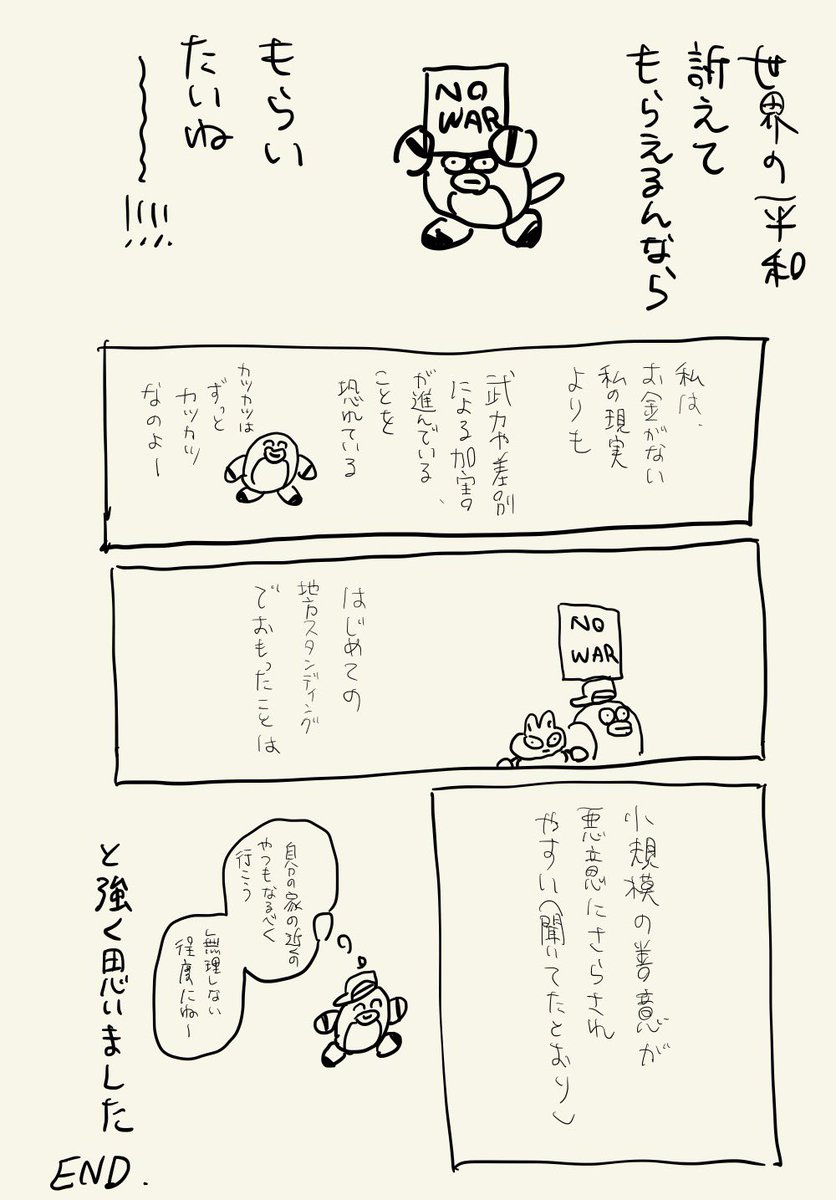 世界の平和
訴えて
もらえるんなら
NO
WAR
もらい
たいね
〜〜〜!!!!
私は、
お金がない
私の現実
よりも
武力や差別
による加害
が進んでいる、
ことを
恐れている
カツカツは
ずっと
カツカツ
なのよー
NO
WAR
はじめての
地方スタンディング
でおもったことは
小規模の善意が
悪意にさらされ
やすい(聞いてたとおり)
自分の家の近くの
やつもなるべく
行こう
無理しない
程度にね〜
と強く思いました
END.